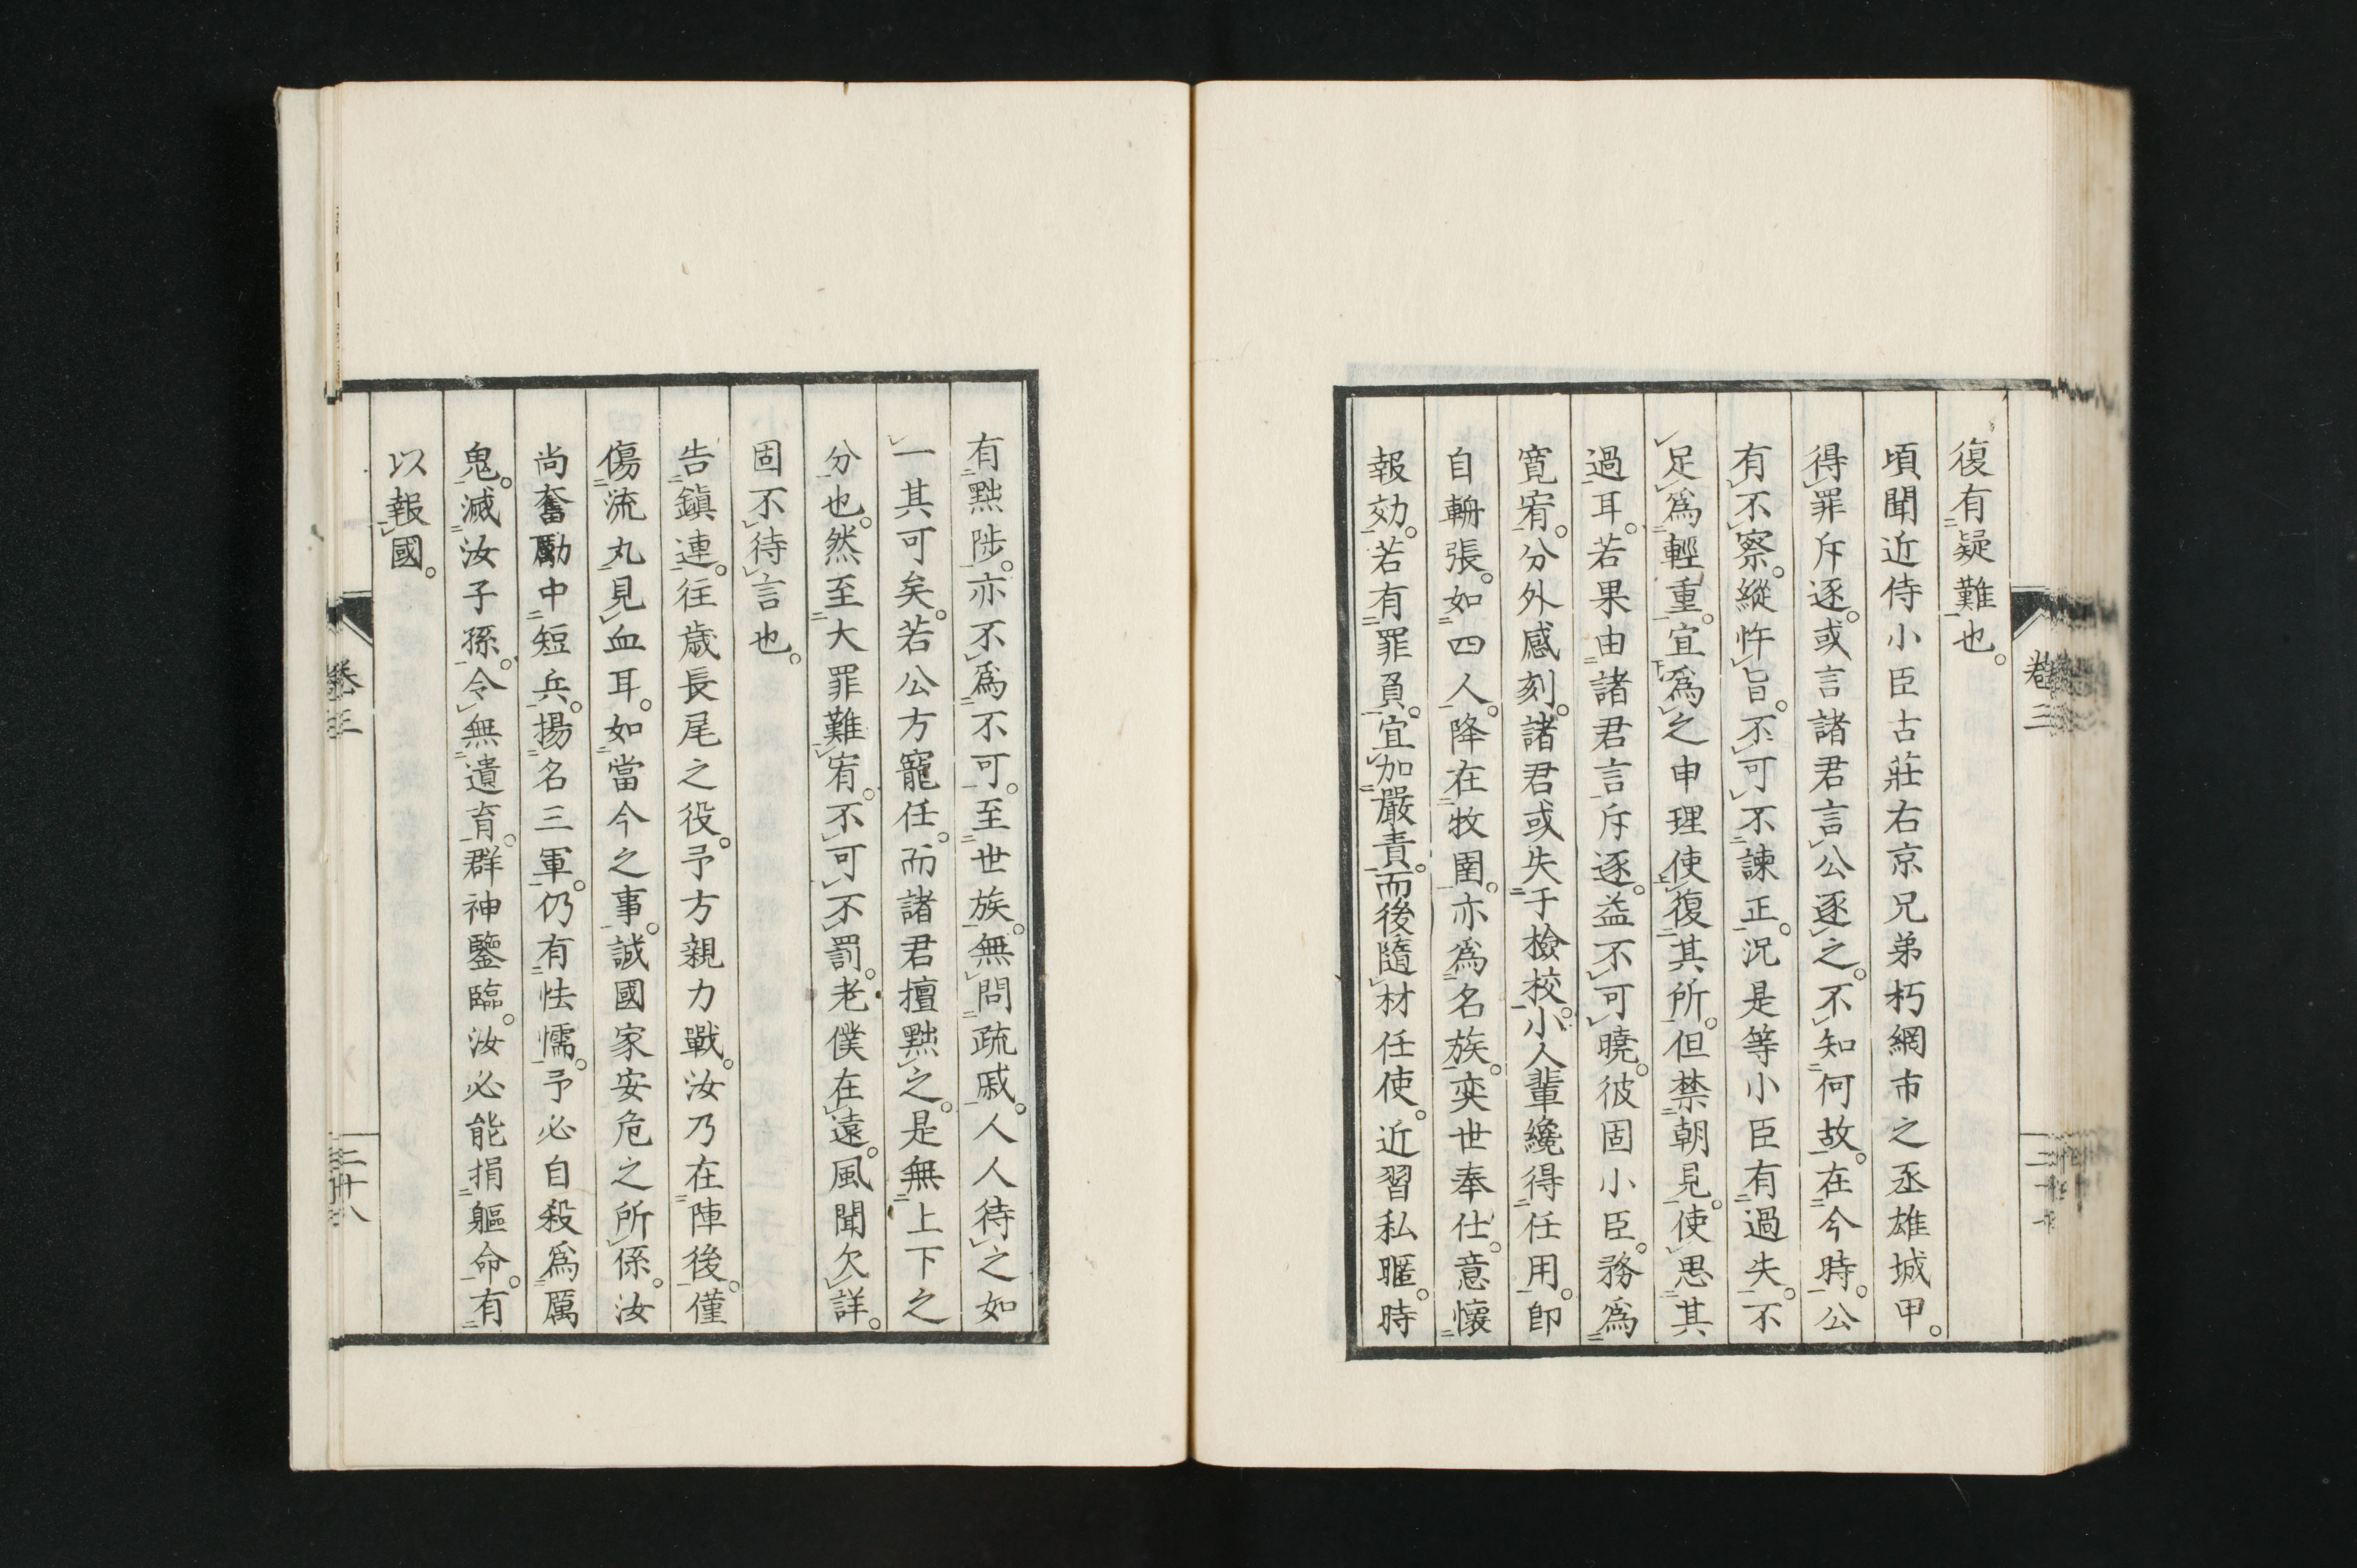 復有疑難也。
頃聞近侍小臣古莊右京兄弟朽網市之丞雄城甲。
得罪斥逐。或言諸君言公逐之。不知何故。在今時。公
有不察。縱忤旨。不可不諫正。況是等小臣有過失。不
足爲輕重。宜爲之申理使復其所。但禁朝見。使思其
過耳。若果由諸君言斥逐。益不可曉。彼固小臣。務爲
寬宥。分外感刻。諸君或失于檢校。小人輩纔得任用。卽
自輈張。如四人。降在牧圉。亦爲名族。奕世奉仕。意懷
報効。若有罪負。宜加嚴責。而後隨材任使。近習私暱。時
卷三
有黜陟。亦不爲不可。至世族。無問疏戚。人人待之如
一其可矣。若公方寵任。而諸君擅黜之。是無上下之
分也。然至大罪難宥。不可不罰。老僕在遠。風聞欠詳。
固不待言也。
告鎭連。往歲長尾之役。予方親力戰。汝乃在陣後。僅
傷流丸見血耳。如當今之事。誠國家安危之所係。汝
尚奮勵中短兵。揚名三軍。仍有怯懦。予必自殺爲厲
鬼。滅汝子孫。令無遺育。群神鑒臨。汝必能捐軀命。有
以報國。
卷三
二十八